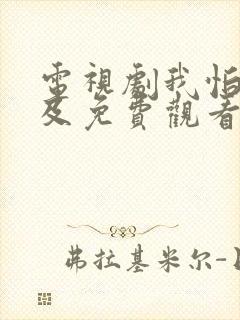 電視劇我怕
及免費觀看
弗拉基米尔-